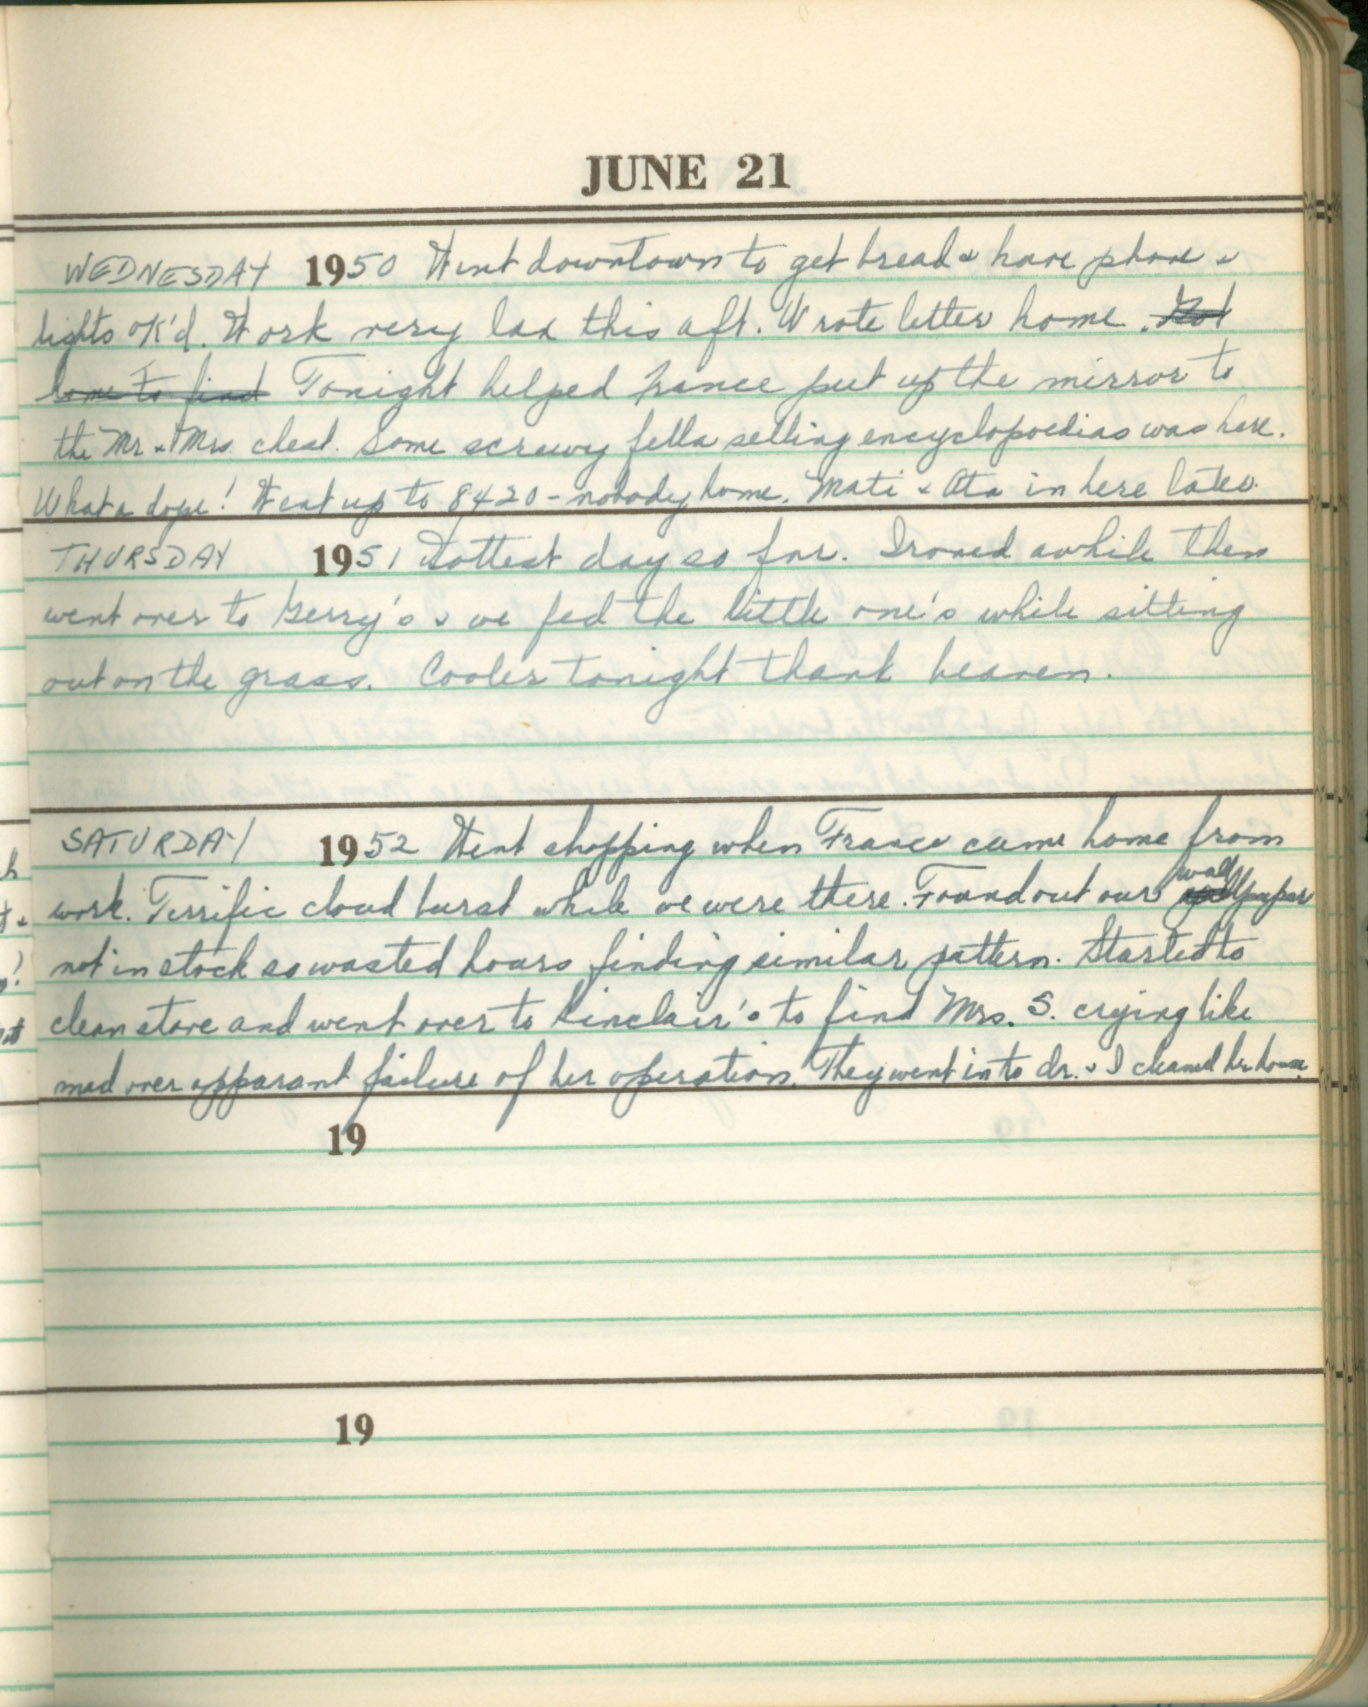 JUNE 21
WEDNESDAY 1950 Went downtown to get bread & have phone &
lights ok'd. Work very lax this aft. Wrote letter home. Got
home to find Tonight helped France put up the mirror to
the Mr. & Mrs. chest. Some screwy fella selling encyclopoedias was here.
What a dope! Went up to 8420 - nobody home. Mati & Ata in here later.
THURSDAY 1951 Hottest day so far. Ironed awhile then
went over to Gerry's & we fed the little one's while sitting
out on the grass. Cooler tonight thank heaven.
SATURDAY 1952 Went shopping when France came home from
work. Terrific cloud burst while we were there. Found out our wallpaper
not in stock so wasted hours finding similar pattern. Started to
clean stove and went over to Sinclair's to find Mrs. S. crying like
mad over apparant failure of her operation. They went in to dr. & I cleaned her house.
19
19